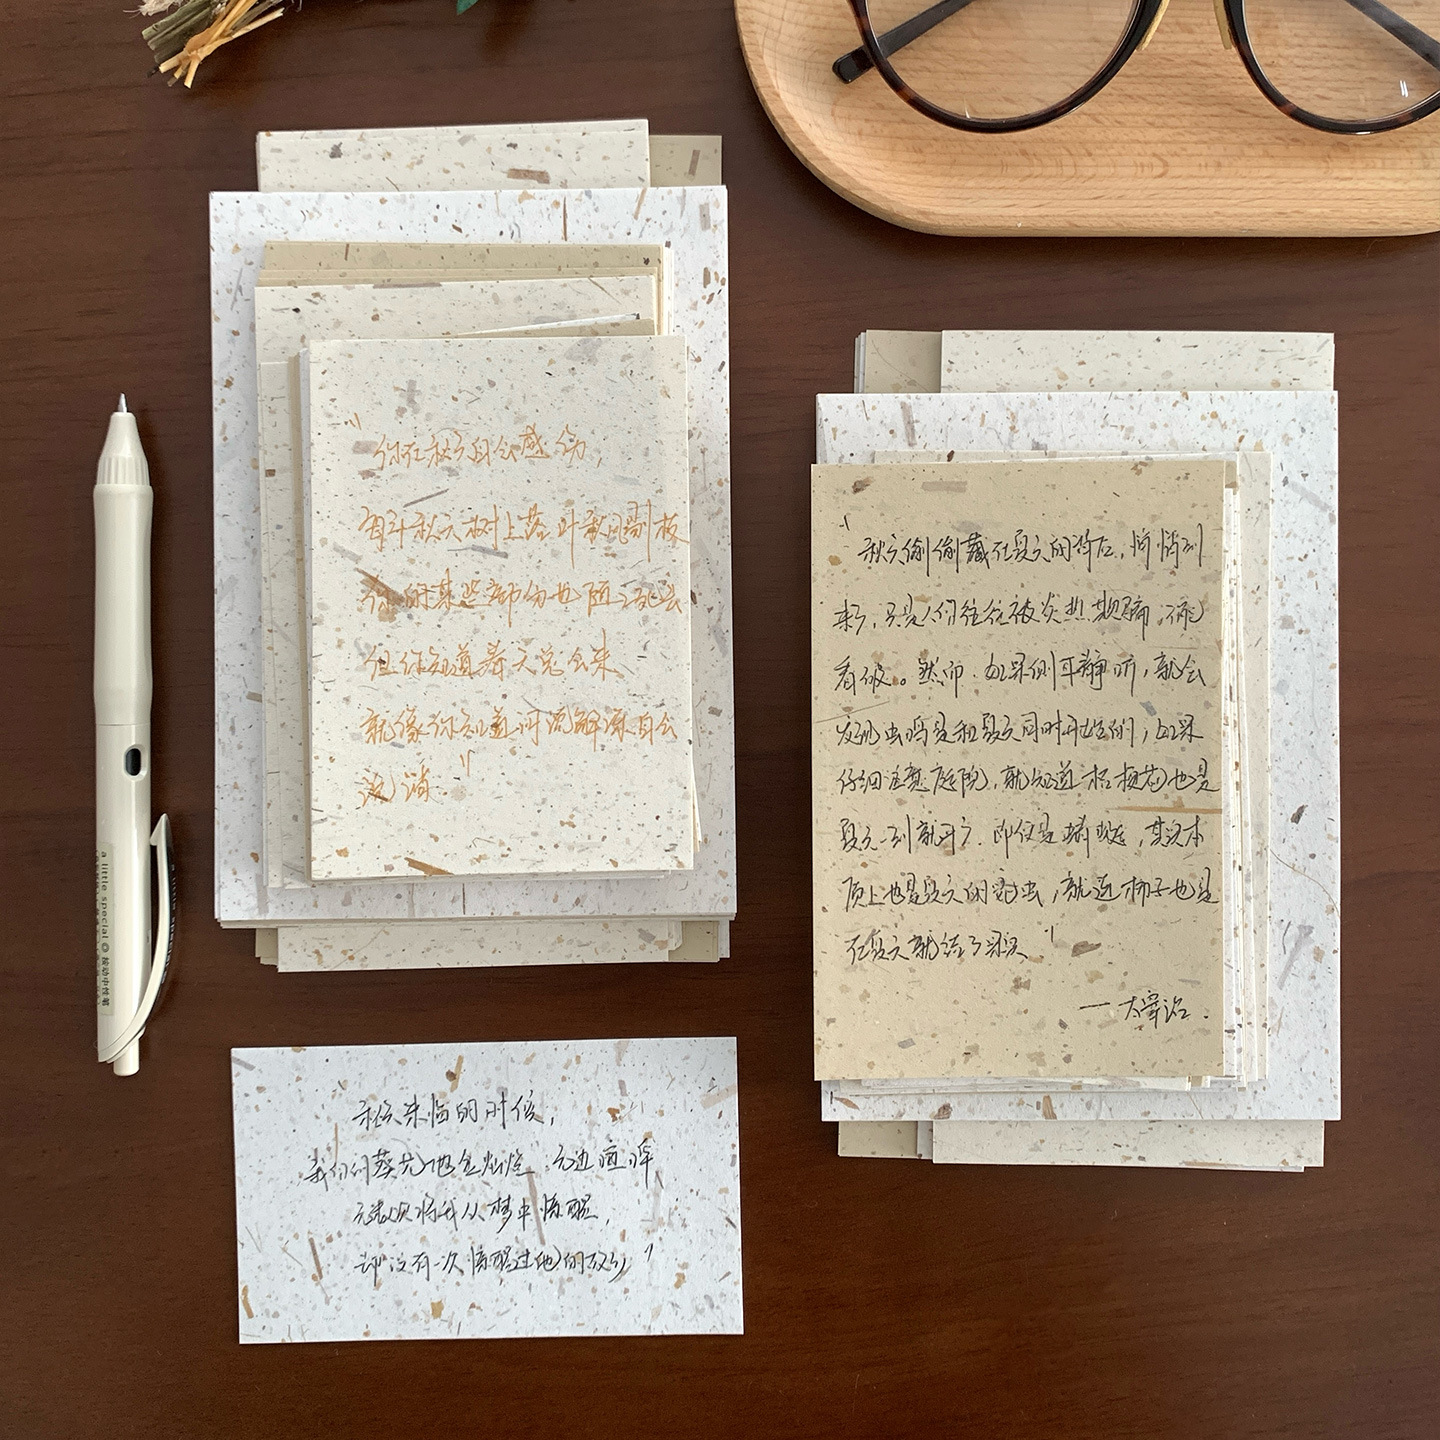 "你在秋天自会感伤,
每年秋天树上落叶秋风剥枝
你的某些部分也随之死去
但你知道春天总会来
就像你知道河流解冻自会
流淌."
"秋天偷偷藏在夏天的背后,悄悄到
来了,只是人们往往被炎热欺骗,不能
看破。然而,如果侧耳静听,就会
发现虫鸣是和夏天同时开始的;如果
仔细注意庭院,就知道桔梗花也是
夏天一到就开了。即使是蜻蜓,其实本
质上也是夏天的昆虫,就连柿子也是
在夏天就结了果实"
——太宰治.
秋天来临的时候,
我们的葵花地金灿灿
无数次将我从梦中惊醒,
却没有一次惊醒过他的
a little special ◎ 按动中性笔